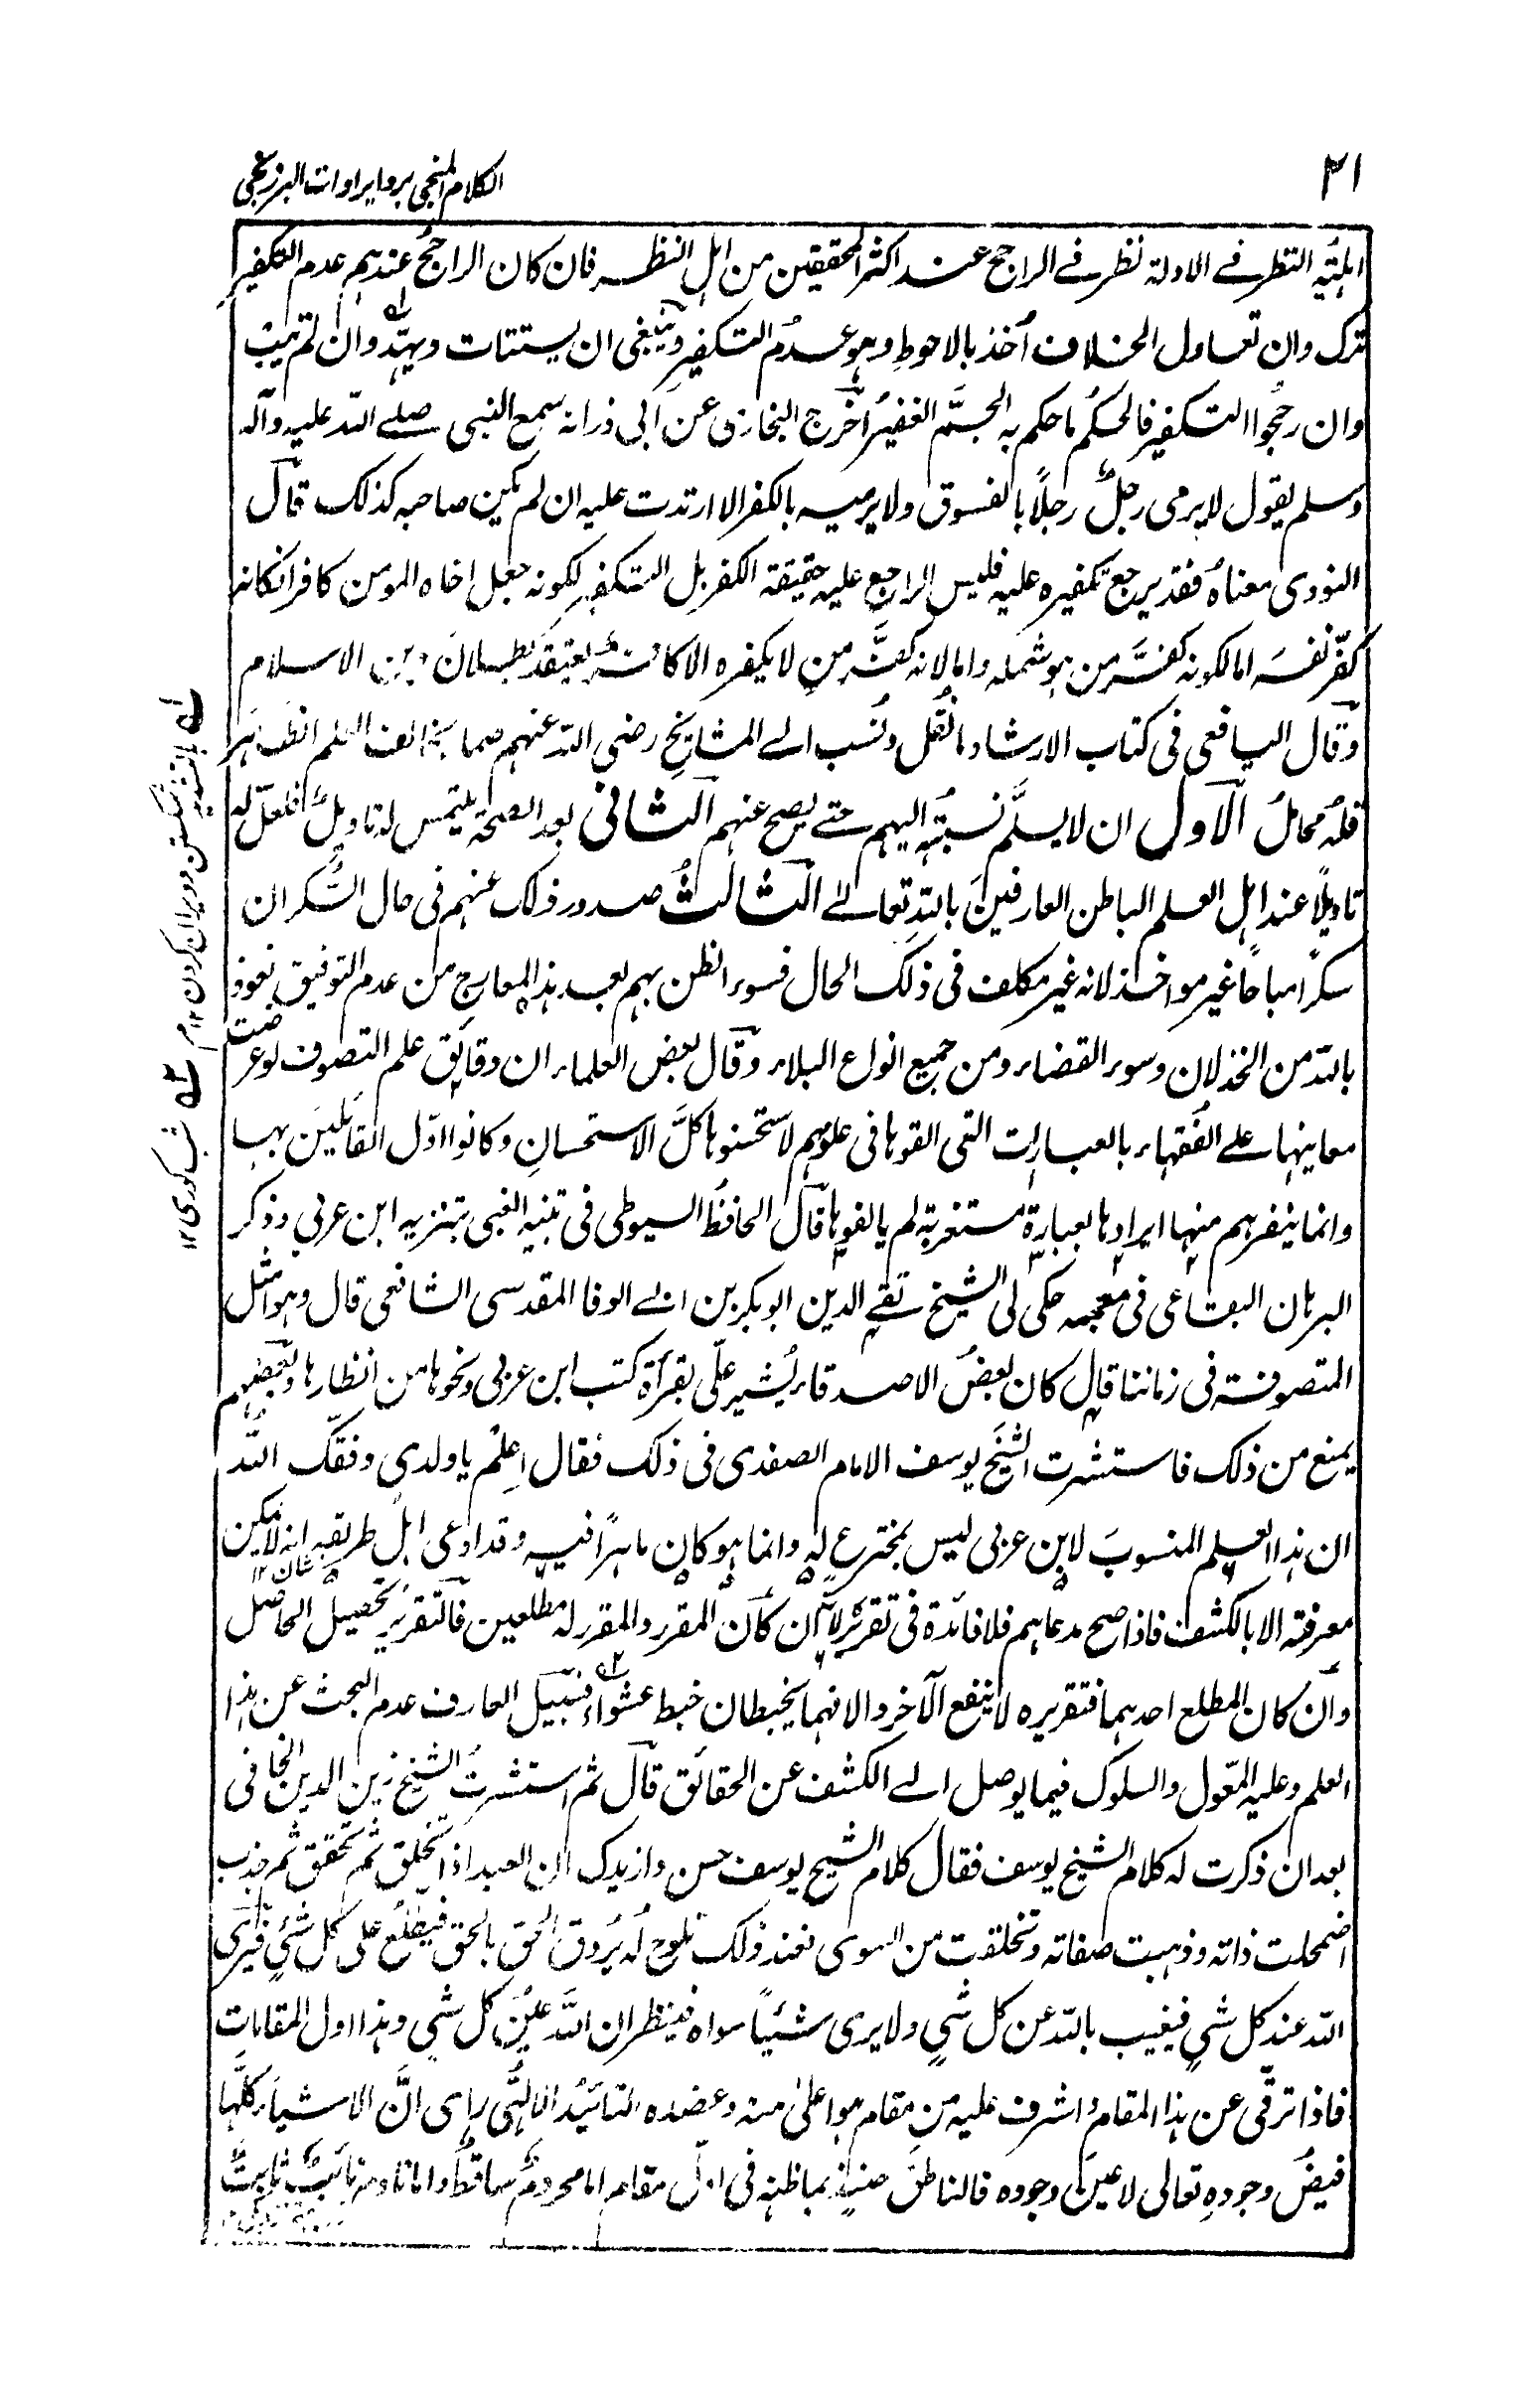 ٣١
الكلام المنجی برد ایرادات البرزنجی
اہلیّۃ النظر فے الادلۃ نظر فے الراجح عند اکثر المحققین من اہل النظر فان کان الراجحُ عندہم عدم التکفیرِ
ترک وان تعادل الخلاف اُخذ بالاحوطِ وہو عدمُ التکفیرِ وینبغی ان یستتاب ویہدّد وان لم یتب
وان رجّحوا التکفیر فالحکمُ ما حکم بہ الجمَّ الغفیرُ اخرج البخاری عن ابی ذر انہ سمع النبی صلے اللّٰہ علیہ وآلہ
وسلم یقول لا یرمی رجلٌ رجلًا بالفسوق ولا یرمیہ بالکفر الا ارتدت علیہ ان لم یکن صاحبہ کذلک قال
النووی معناہ فقد یرجع تکفیرہ علیہ فلیس الراجع علیہ حقیقۃ الکفر بل التکفیر لکونہ جعل اخاہ المومن کافرا فکانہ
کفّر نفسَہ اما لکونہ کفّر من ہو مثلہ واما لانہ کفّر من لا یکفرہ الا کافر یعتقد بطلانَ دین الاسلام
وقال الیافعی فی کتاب الارشاد ما نُقل ونُسب الے المشایخ رضی اللّٰہ عنہم مما یخالف العلم الظاہر
فلہ محاملُ الاول ان لا یسلَّم نسبتُہ الیہم حتے یصح عنہم الثانی بعد الصحۃ یلتمس لہ تاویلٌ فلعلّ لہ
تاویلًا عند اہل العلم الباطن العارفینَ باللّٰہ تعالےٰ الثالثُ صدور ذلک عنہم فی حال السُّکر ان
سکرًا مباحًا غیر مواخذ لانہ غیر مکلف فی ذلک الحال فسوء الظن بہم بعد ہذہ المعارج من عدم التوفیق نعوذ
باللّٰہ من الخذلان وسوء القضاء ومن جمیع انواع البلاء وقال بعض العلماء ان دقایق علم التصوف لو عرضت
معاینہا علے الفقہاء بالعبارات التی القوہا فی علومہم لاستحسنوہا کلَّ الاستحسانِ وکانوا اوّل القائلین بہا
وانما ینفرہم منہا ایرادہا بعبارۃ مستغربۃ لم یالفوہا قال الحافظُ السیوطی فی تنبیہ الغبی بتنزیہ ابن عربی وذکر
البرہان البقاعی فی معجمہ حکی لی الشیخ تقے الدین ابوبکر بن ابے الوفا المقدسی الشافعی قال وہو امثل
المتصوفۃ فی زماننا قال کان بعضُ الاصدقاء یُشیر علّی بقرأۃ کتب ابن عربی ونحوہا من انظارہا وبعضہم
یمنع من ذلک فاستشرت الشیخَ یوسف الامام الصفدی فی ذلک فقال اعلم یا ولدی وفقک اللّٰہ
ان ہذا العلم المنسوبَ لابن عربی لیس بمخترعٍ لہ وانما ہو کان ماہرًا فیہ وقد ادعی اہل طریقہ انہ لا یمکن
معرفتہ الا بالکشف فاذا صح مدعاہم فلا فائدۃ فی تقریرہ لانہ ان کان المقرر والمقرر لہ مطلعین فالتقریرُ تحصیل الحاصل
وان کان المطلع احدہما فتقریرہ لا ینفع الآخر والا فہما یخبطان خبط عشواء فسبیل العارف عدم البحث عن ہذا
العلم وعلیہ المعّول والسلوک فیما یوصل الے الکشف عن الحقائق قال ثم استشرتُ الشیخ زین الدین الخافی
بعد ان ذکرت لہ کلام الشیخ یوسف فقال کلام الشیخ یوسف حسن وازیدک ان العبد اذا تخلق ثم تحقق ثم جذب
اضمحلت ذاتہ وذہبت صفاتہ وتخلقت من السوی فعند ذلک تلوح لہ بُروق الحق بالحق فیطّلع علی کل شئٍ فیری
اللّٰہ عند کل شیٍ فیغیب باللّٰہ عن کل شیٍ ولا یری شیئًا سواہ فینظر ان اللّٰہ عینُ کل شی وہذا اول المقاماتِ
فاذا ترقّی عن ہذا المقام واشرف علیہ من مقام ہو اعلیٰ منہ وعضدہ التائیدُ الالٰہی رای انَّ الاشیاء کلّہا
فیضُ وجودہِ تعالی لا عین وجودہ فالناطق حینئذٍ بما ظنہ فی اول مقام اما محرومٌ ساقطٌ واما نادم تائبٌ ثابتٌ
لے بالتشدید شکستن وویران کردن ١٢ م
لے شب کوری ١٢
شان ١٢